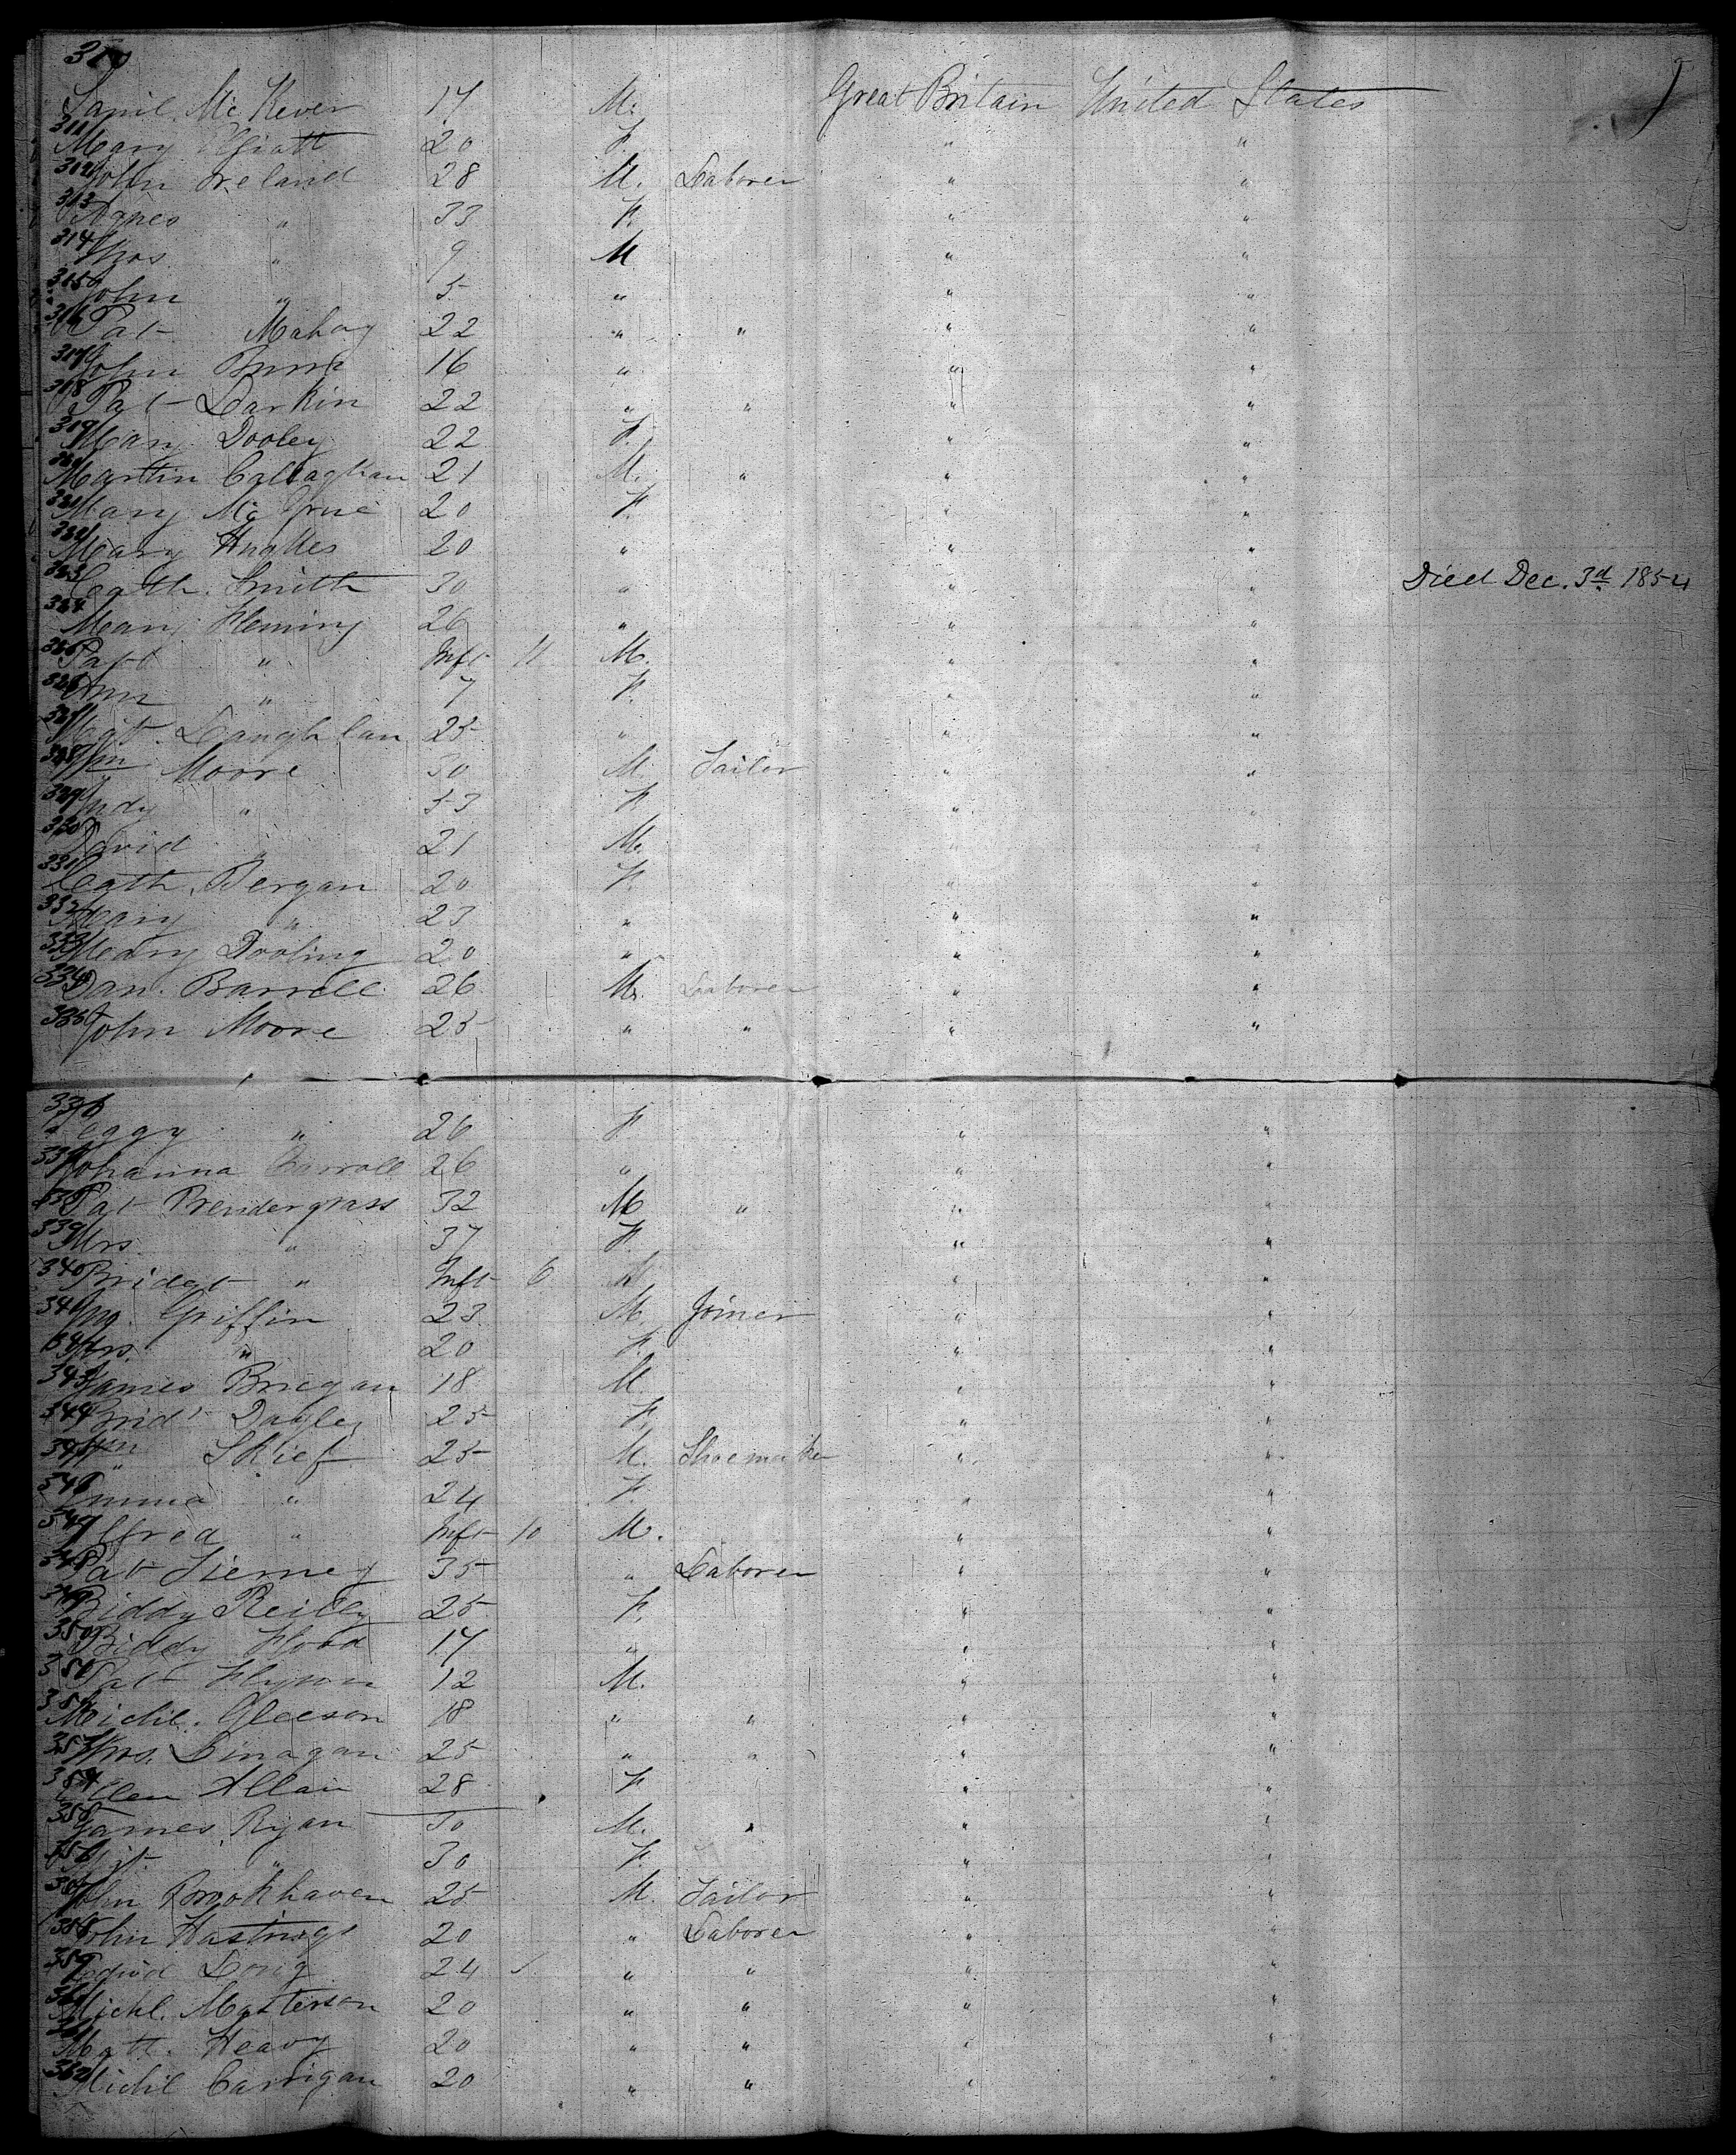 310
Saml. McKever 17 M. Great Britain United States
311
Mary Wyatt 20 F. " "
312 John Ireland 28 M. Laborer " "
313 Agnes " 33 F. " "
314 Thos " 9 M " "
315 John " 5 " " "
316 Pat Mahay 22 " " " "
317 John Burns 16 " " "
318 Pat Larkin 22 " " " "
319 Mary Dooley 22 F. " "
320 Martin Callaghan 21 M. " " "
321 Mary 20 F. " "
322 Mary Hughes 20 " " "
323 Cath. Smith 30 " " " Died Dec. 3d. 1854
324 Mary Fleming 26 " " "
325 Patk " Inft 11 M. " "
326 Ann " 7 F. " "
327 Laughlan 25 " " "
328 Wm Moore 30 M. Tailor " "
329 Judy " 33 F. " "
330 David " 21 M. " "
331 Cath. Bergan 20 F. " "
332 Mary " 23 " " "
333 Mary Dooling 20 " " "
334 Dan. Barrell 26 M. Laborer " "
335 John Moore 25 " " " "
336 Peggy " 26 F " "
337 Johanna 26 " " "
338 Pat Prendergrass 32 M " " "
339 Mrs " 37 F. " "
340 Bridgt " Inft 6 " "
341 Griffin 23 M. Joiner " "
342 Mrs. " 20 F. " "
343 James Briegan 18 M. " "
344 Brid' Dayley 25 F. " "
345 Wm Skief 25 M. Shoemaker " "
346 Emma " 24 F. " "
347 Alfred " Inft 10 M. " "
348 Pat Tierney 35 " Laborer " "
349 Biddy Reilly 25 F. " "
350 Biddy Flood 17 " " "
351 Pat Flynn 12 M. " "
352 Michl. Gleeson 18 " " " "
353 Thos. Linagan 25 " " " "
354 Ellen Allan 28 F " "
355 James Ryan 30 M. " " "
356 " 30 F. " "
357 John Brookhaven 25 M. Tailor " "
358 John Hastings 20 " Laborer " "
359 Long 24 " " " "
360 Michl. Masterson 20 " " " "
361 Matt. Heavy 20 " " " "
362 Michl Carrigan 20 " " " "